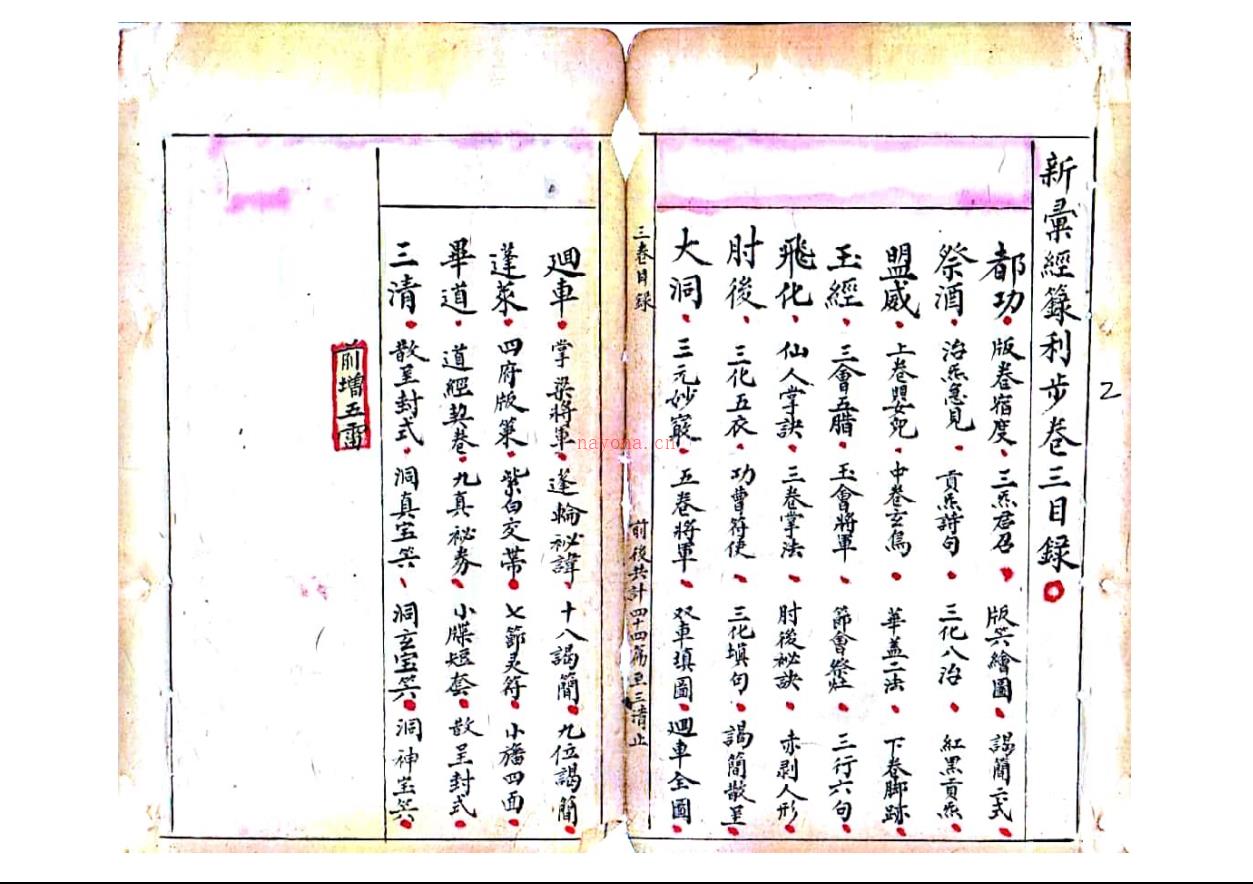 新彙經籙利步卷三目録
都功 版卷宿度 三炁君召 版笑繪圖 謁簡二式
祭酒 治炁急見 貢炁詩句 三化八治 紅黑貢炁
盟威 上卷 中卷玄鳥 華盖二法 下卷脚跡
玉經 三會五腊 玉會將軍 節會祭壯 三行六句
飛化 仙人掌訣 三卷掌法 肘後祕訣 赤剥人形
肘後 三化五衣 功曹符使 三化填句 謁簡散呈
大洞 三元妙寂 五卷將軍 双車填圖 廻車全圖
三卷目録 前後共計四十四篇至三清止
廻車 掌梁將軍 逢輪祕諱 十八謁簡 九位謁簡
蓬萊 四府版策 紫白交帶 七節灵符 小旛四面
畢道 道經契卷 九真祕券 小牒短套 散呈封式
三清 散呈封式 洞真宝笑 洞玄宝笑 洞神宝笑
前增五雷
2
nayona.cn